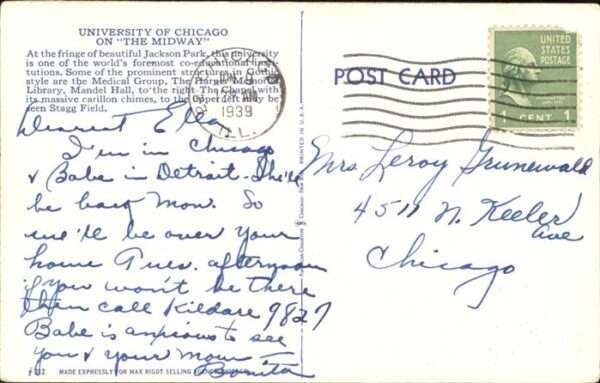 UNIVERSITY OF CHICAGO
ON "THE MIDWAY"
At the fringe of beautiful Jackson Park, this university
is one of the world's foremost co-educational insti-
tutions. Some of the prominent structures in Gothic
style are the Medical Group, The Harper Memorial
Library, Mandel Hall, to the right The Chapel with
its massive carillon chimes, to the upper left may be
seen Stagg Field.
Dearest Ella
I'm in Chicago
& Babe in Detroit. She'll
be back Mon. So
we'll be over your
home Tues. afternoon
if you won't be there
then call Kildare 9827
Babe is anxious to see
you & your Mom
Bonita
MADE EXPRESSLY FOR MAX RIGOT SELLING
PRINTED IN U.S.A.
CHICAGO
JUN
AM
1939
ILL.
POST CARD
UNITED
STATES
POSTAGE
1 CENT 1
Mrs Leroy Grunewald
4511 N. Keeler
Ave
Chicago